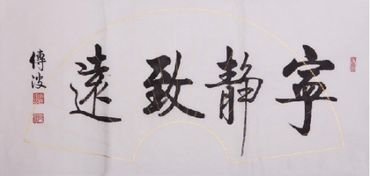 寧静致遠
傅波